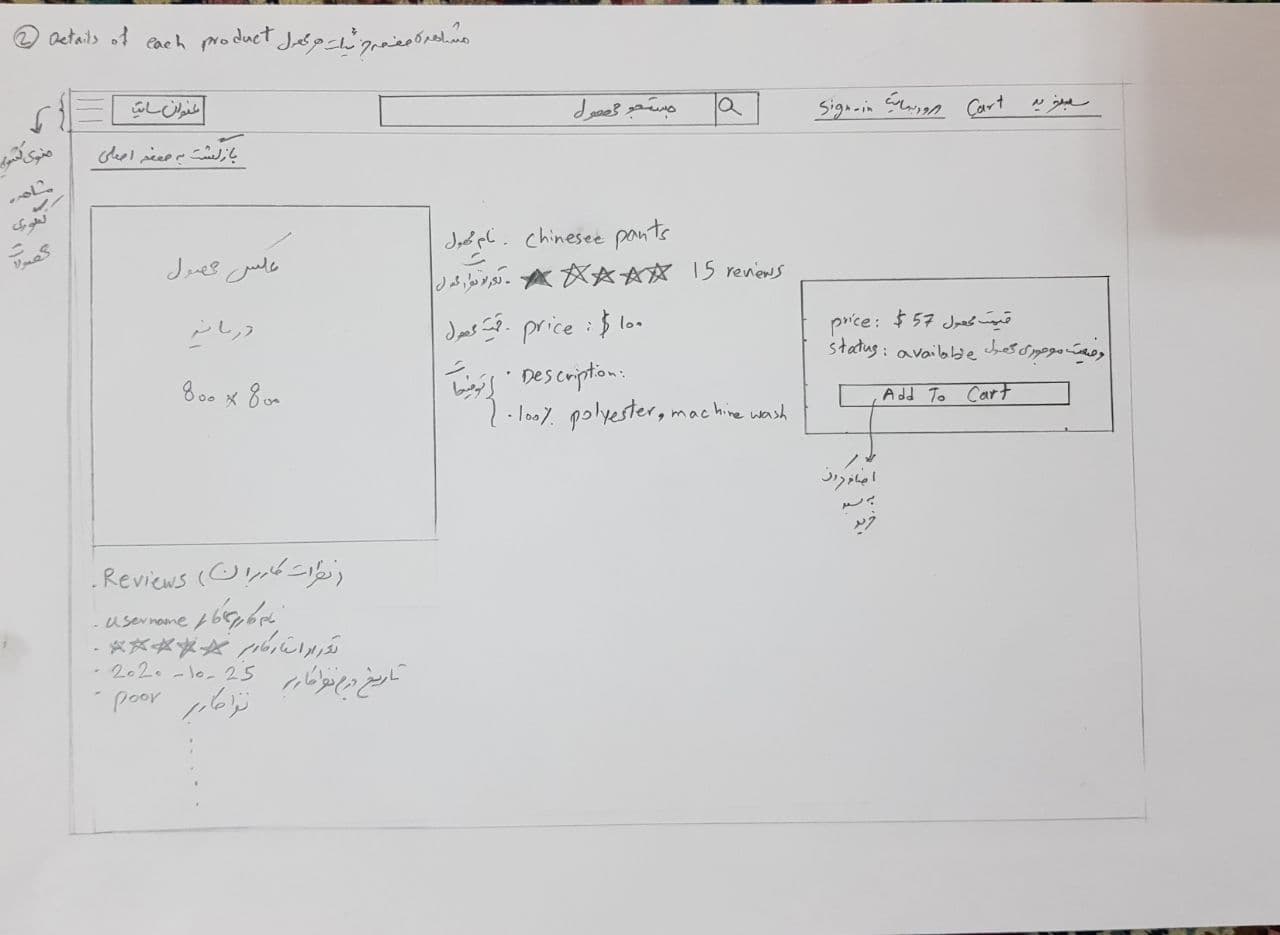 ② Details of each product مشاهده صفحه جزئیات هر محصول
عنوان سایت
جستجو محصول
Sign-in ورود به سایت
Cart سبد خرید
منوی کشویی
مشاهده
کتگوری
محصولات
بازگشت به صفحه اصلی
عکس محصول
در سایز
800 x 800
نام محصول . Chinesee pants
15 reviews
قیمت محصول . price : $ 100
توضیحات
. Description:
. 100% polyester, machine wash
price: $ 57 قیمت محصول
status: available وضعیت موجودی محصول
Add To Cart
اضافه کردن
به سبد
خرید
. Reviews (نظرات کاربران)
. username نام کاربری
. تعداد استار کاربر
. 2020-10-25 تاریخ درج نظر کاربر
. poor نظر کاربر